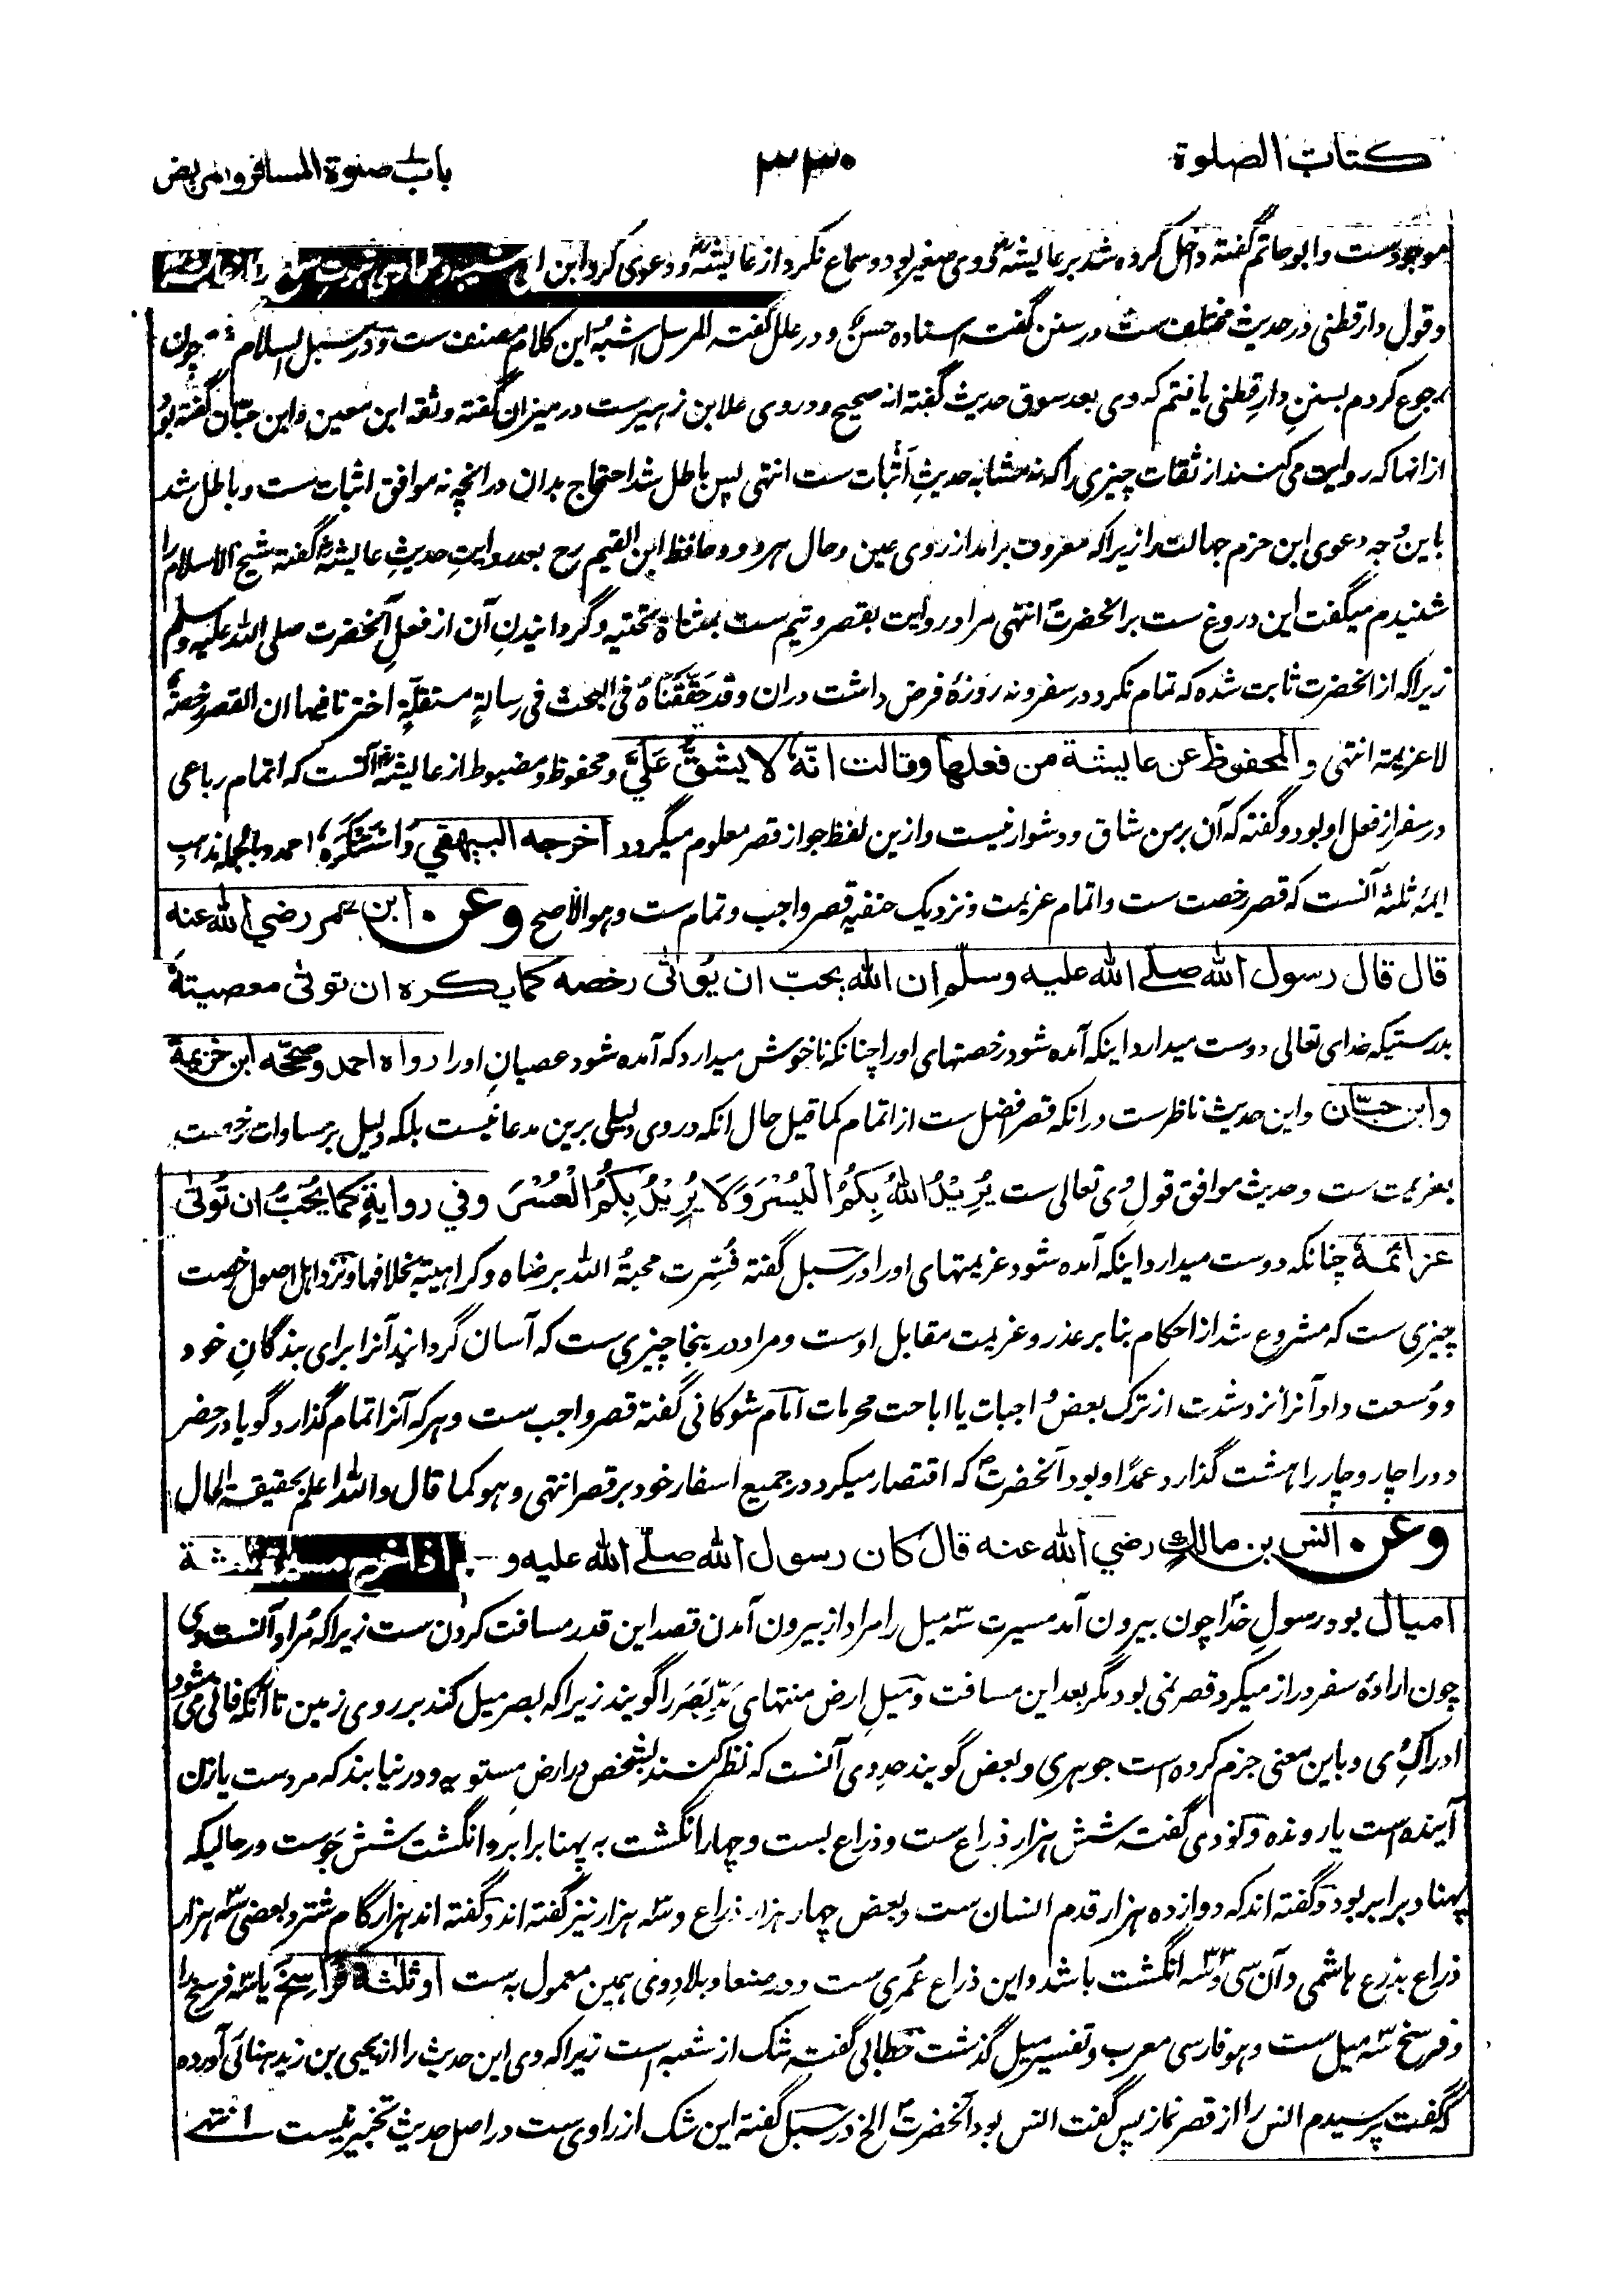 کتاب الصلوة
۳۳۰
باب صلوة المسافر والمریض
موجودست وابوحاتم گفته داخل کرده شد بر عایشه ووی صغیر بود وسماع نکرد از عایشه ودعوی کرد ابن ابی شیبه
وقول دارقطنی در حدیث مختلف ست در سنن گفته اسناده حسن ودر علل گفته المرسل اشبه این کلام مصنف ست ودر سبل السلام چون
رجوع کردم بسنن دارقطنی یافتم که وی بعد سوق حدیث گفته انه صحیح ودر وی علا بن زهیرست در میزان گفته وثقه ابن معین وابن حبان گفته بود
از انها که روایت می کنند از ثقات چیزی را که نه مشابه حدیث اثبات ست انتهی پس باطل شد احتجاج بدان در انچه نه موافق اثبات ست وباطل شد
باین وجه دعوی ابن حزم جهالت را زیرا که معروف برامد از روی عین وحال هر دو وحافظ ابن القیم رح بعد روایت حدیث عایشه گفته شیخ الاسلام را
شنیدم میگفت این دروغ ست بر انحضرت انتهی مراد روایت بقصر وتیم ست بمثناة تحتیه وگردانیدن آن از فعل آنحضرت صلی الله علیه وسلم
زیرا که از انحضرت ثابت شده که تمام نکرد در سفر ونه روزهٔ فرض داشت دران وقد حققناه فی البحث فی رسالةٍ مستقلةٍ اخترنا فیها ان القصر رخصةٌ
لا عزیمة انتهی والمحفوظ عن عایشة من فعلها وقالت انه لا یشق علیّ ومحفوظ ومضبوط از عایشه آنست که اتمام رباعی
در سفر از فعل او بود وگفته که آن بر من شاق ودشوار نیست وازین لفظ جواز قصر معلوم میگردد اخرجه البیهقي واستنکره احمد وبالجمله مذاهب
ایمهٔ ثلثه آنست که قصر رخصت ست واتمام عزیمت ونزدیک حنفیه قصر واجب وتمام ست وهو الاصح وعن ابن عمر رضي الله عنه
قال قال رسول الله صلے الله علیه وسلم ان الله یحبّ ان یؤتی رخصه کما یکره ان توتی معصیته
بدرستیکه خدای تعالی دوست میدارد اینکه آمده شود رخصتهای اورا چنانکه ناخوش میدارد که آمده شود عصیان اورا رواه احمد وصححه ابن خزیمة
وابن حبان واین حدیث ناظرست در انکه قصر افضل ست از اتمام کما قیل حال انکه در وی دلیلی برین مدعا نیست بلکه دلیل بر مساوات رخصت
بعزیمت ست وحدیث موافق قول وی تعالی ست یُرِیْدُ اللهُ بِکُمُ الْیُسْرَ وَلَا یُرِیْدُ بِکُمُ الْعُسْرَ وفي روایةٍ کما یُحَبُّ ان تُوتی
عزائمه چنانکه دوست میدارد اینکه آمده شود عزیمتهای اورا در سبل گفته فُسّرت محبةُ الله برضاه وکراهیته بخلافها ونزد اهل اصول رخصت
چیزی ست که مشروع شد از احکام بنابر عذر وعزیمت مقابل اوست ومراد در ینجا چیزی ست که آسان گردانید آنرا برای بندگان خود
ووسعت داد آنرا نزد شدت از ترک بعض واجبات یا اباحت محرمات امام شوکانی گفته قصر واجب ست وهر که آنرا تمام گذارد گویا در حضر
دورا چار وچار را هشت گذارد عمدًا وبود آنحضرت که اقتصار میکرد در جمیع اسفار خود بر قصر انتهی وهو کما قال والله اعلم بحقیقة الحال
وعن انس بن مالك رضي الله عنه قال کان رسول الله صلّے الله علیه و اذا خرج مسیرة ثلثة
امیال بود رسول خدا چون بیرون آمد مسیرت سه میل را مراد از بیرون آمدن قصد این قدر مسافت کردن ست زیرا که مراد آنست وی
چون ارادهٔ سفر دراز میکرد قصر نمی بود مگر بعد این مسافت ومیل ارض منتهای مدّ بصر را گویند زیرا که بصر میل کند بر روی زمین تا آنکه فانی می شود
ادراک وی وباین معنی جزم کرده است جوهری وبعض گویند حد وی آنست که نظر کنند بشخص در ارض مستویه ودر نیابند که مردست یا زن
آینده است یا رونده ونووی گفته شش هزار ذراع ست وذراع بست وچهار انگشت به پهنا برابر وانگشت شش جوست در حالیکه
پهنا وبرابر بود وگفته اند که دوازده هزار قدم انسان ست وبعض چهار هزار ذراع وسه هزار نیز گفته اند وگفته اند هزار گام شتر وبعضی سه هزار
ذراع بذرع هاشمی وآن سی وسه انگشت باشد واین ذراع عُمری ست ودر صنعا وبلاد وی همین معمول به ست او ثلثة فراسخ یا سه فرسخ را
وفرسخ سه میل ست وهو فارسی معرب وتفسیر میل گذشت خطابی گفته شک از شعبه است زیرا که وی این حدیث را از یحیی بن زید هنائی آورده
که گفت پرسیدم انس را از قصر نماز پس گفت انس بود آنحضرت الخ در سبل گفته این شک از راوی ست در اصل حدیث تخییر نیست انتهے